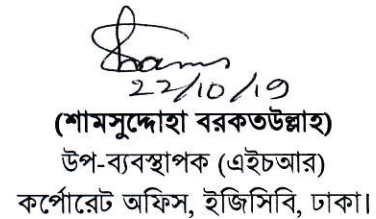 22/10/19
(শামসুদ্দোহা বরকতউল্লাহ)
উপ-ব্যবস্থাপক (এইচআর)
কর্পোরেট অফিস, ইজিসিবি, ঢাকা।